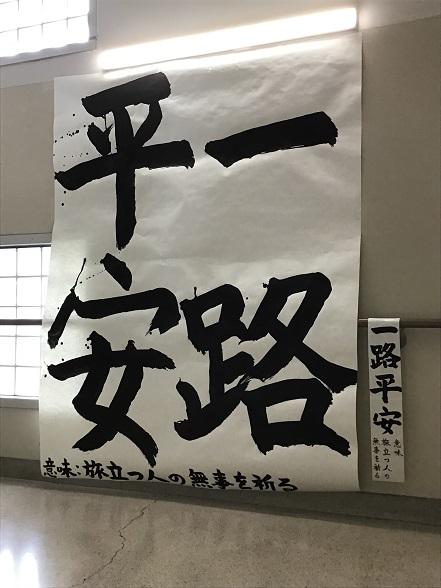 一路
平安
意味:旅立つ人の無事を祈る
一路平安
意味
旅立つ人の
無事を祈る